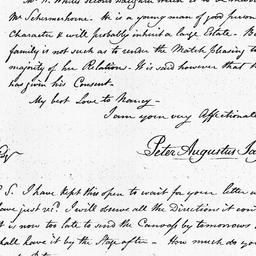 Mr Schermerhorne. He is a young man of good person
Character & will probably inherit a large Estate. B
family is not such as to render the Match pleasing t
majority of her Relation. It is said however that h
has given his Consent.
My best Love to Nancy—
I am yours very Affectionate
Peter Augustus Ja
P.S. I have kept this open to wait for your letter w
have just recd. I will observe all the Directions it con
It is now too late to send the Canvass by tomorrows
shall have it by the Stage after— How much do yo